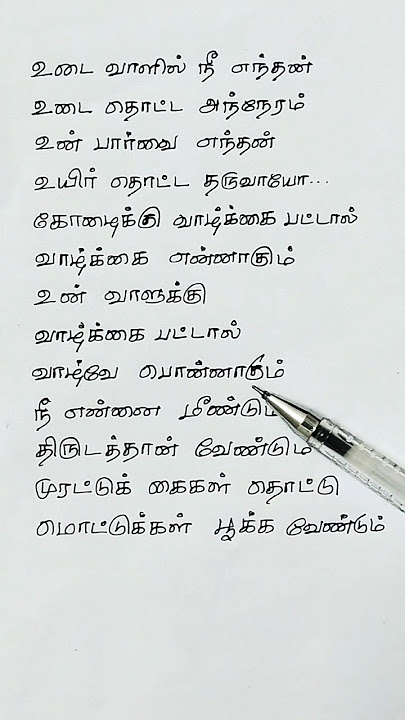 உடை வாளில் நீ எந்தன்
உடை தொட்ட அந்நேரம்
உன் பார்வை எந்தன்
உயிர் தொட்ட தருவாயோ...
கோடைக்கு வாழ்க்கை பட்டால்
வாழ்க்கை என்னாகும்
உன் வாளுக்கு
வாழ்க்கை பட்டால்
வாழ்வே பொன்னாகும்
நீ என்னை மீண்டும்
திருடத்தான் வேண்டும்
முரட்டுக் கைகள் தொட்டு
மொட்டுக்கள் பூக்க வேண்டும்